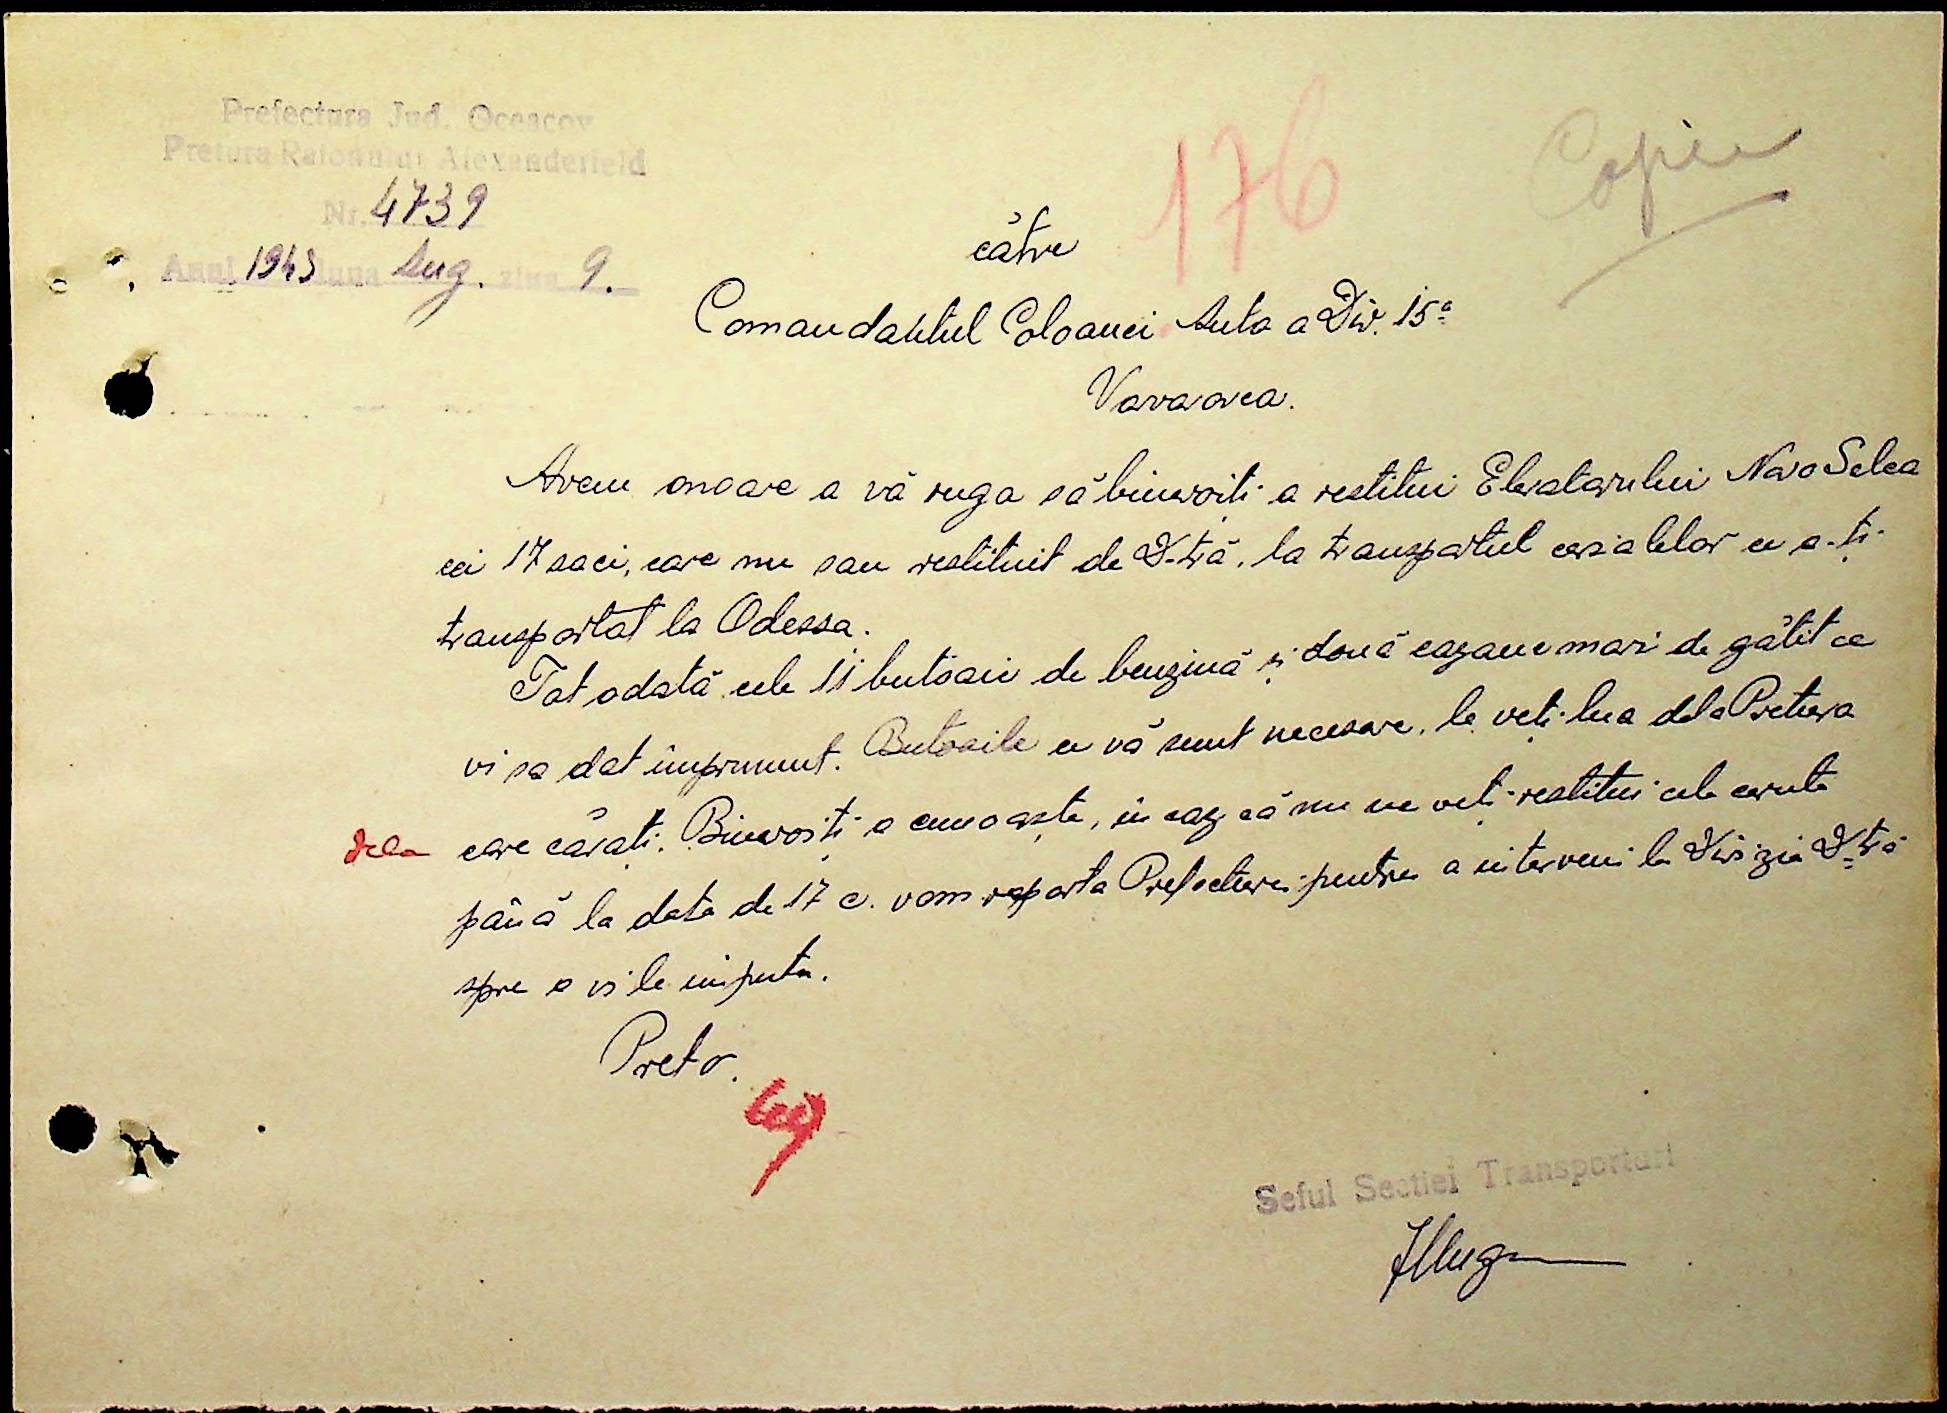 Prefectura Jud. Oceacov
Pretura Raionului Alexanderfeld
Nr. 4739
Anul 1943 luna Aug. ziua 9.
176
Copie
către
Comandantul Coloanei Auto a Div. 15a
Vavarovca.
Avem onoare a vă ruga să binevoiți a restitui Elevatorului Novo Selca
cei 17 saci, care nu sau restituit de D-tră, la transportul cerialelor ce a-ți
transportat la Odessa.
Tot odată cele 11 butoaie de benzină și două cazane mari de gătit ce
vi sa dat împrumut. Butoaile ce vă sunt necesare, le veți lua dela Pretura
dela care cărați. Binevoiți a cunoaște, în caz că nu ne veți restitui cele cerute
până la data de 17 c. vom raporta Prefecturei pentru a interveni la Divizia D-tră
spre a vi le imputa.
Pretor.
Seful Sectiei Transporturi